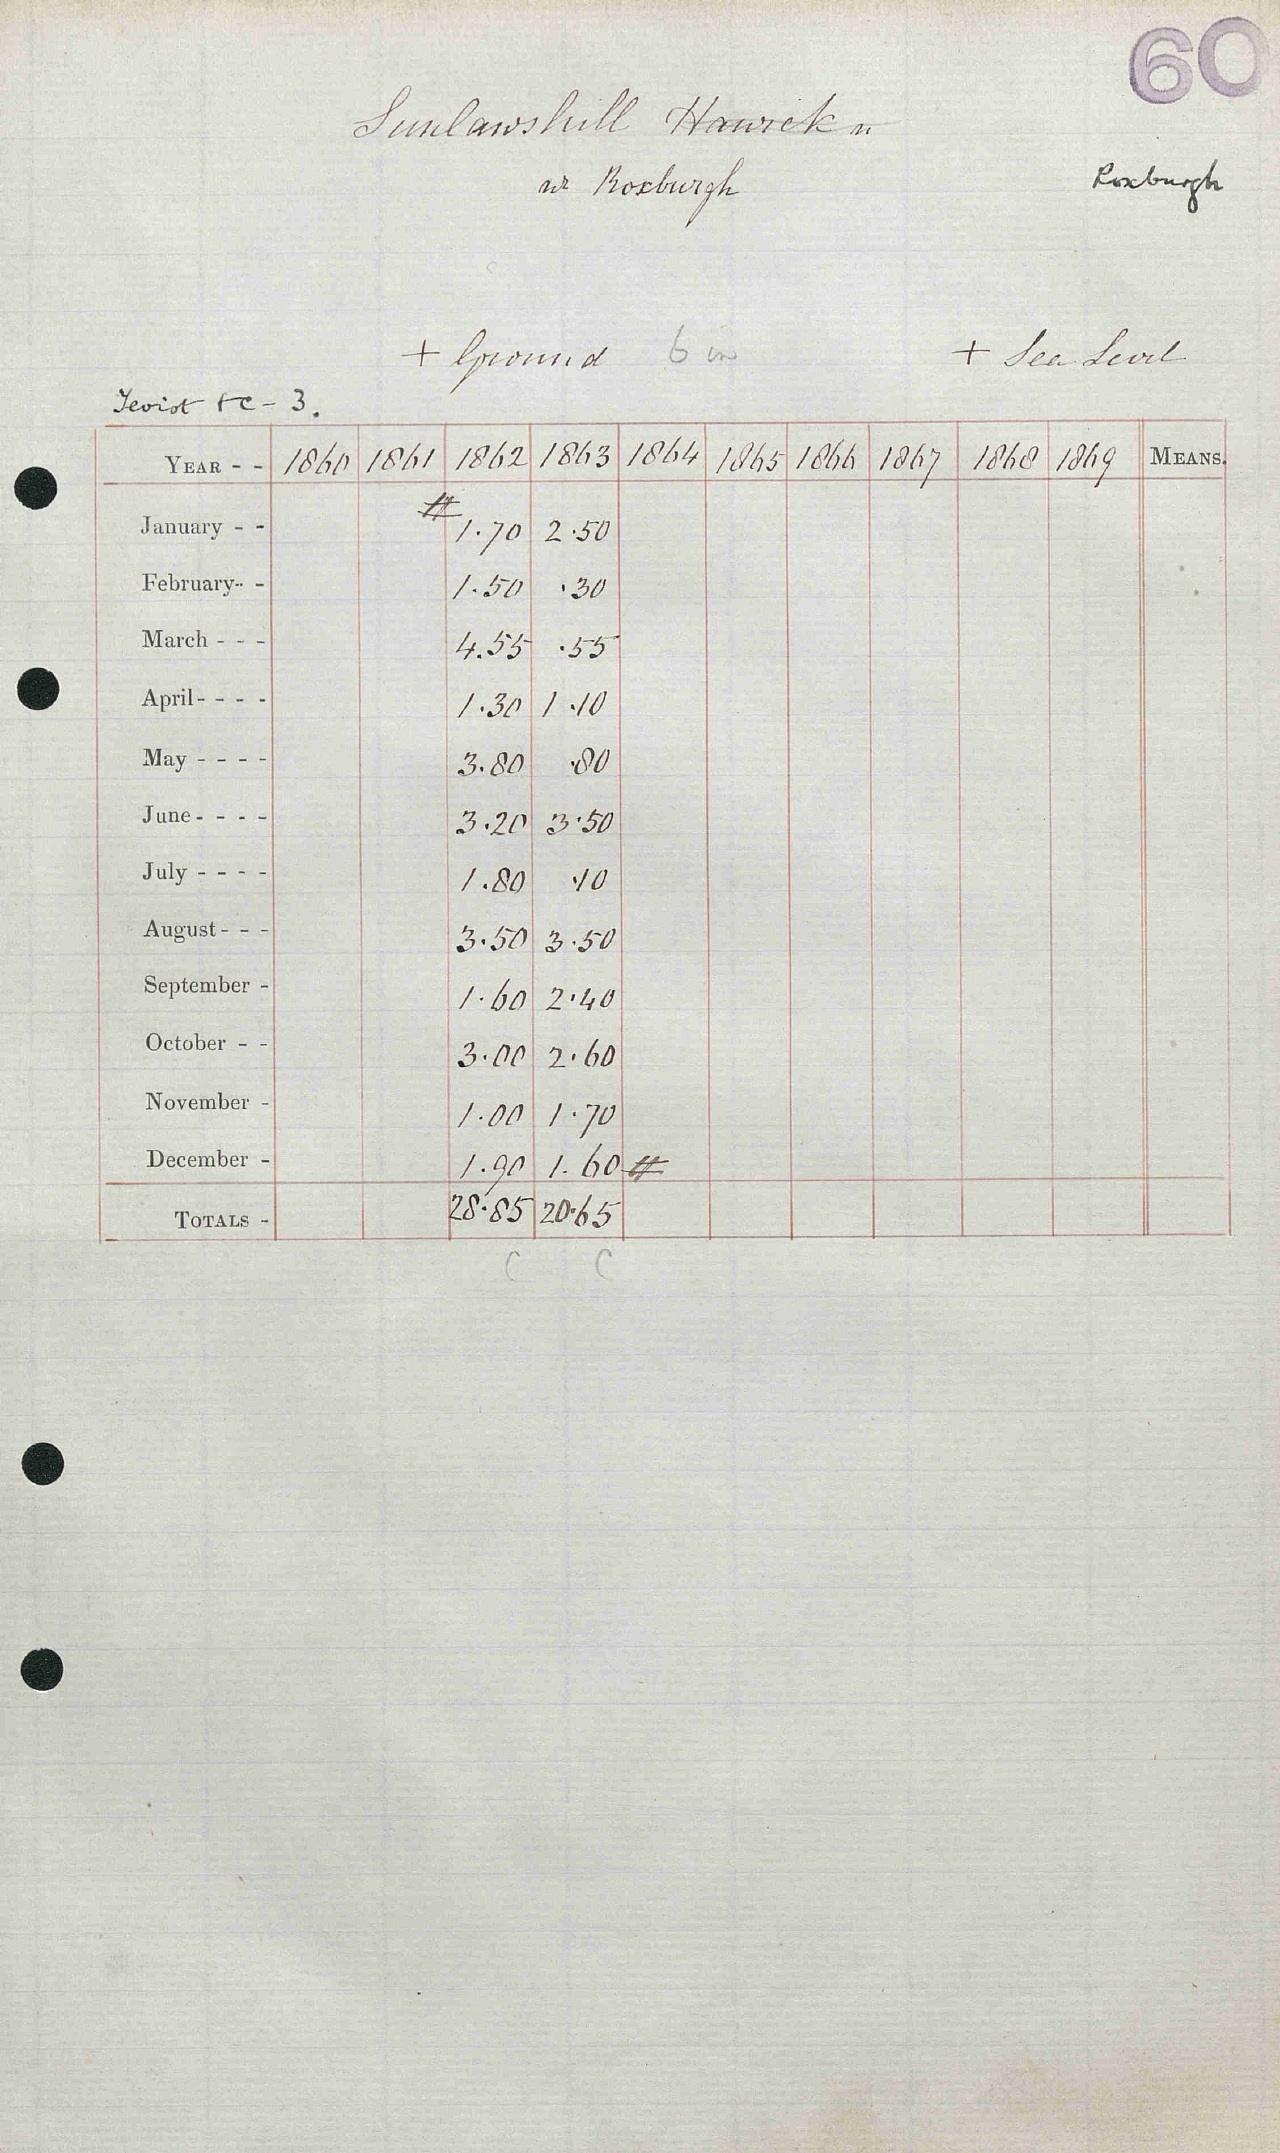 60
Sunlawshill Hawick
nr Roxburgh
Roxburgh
+ Ground 6 in + Sea Level
Teviot &c - 3.
YEAR - - 1860 1861 1862 1863 1864 1865 1866 1867 1868 1869 MEANS.
January - - 1.70 2.50
February - - 1.50 .30
March - - - 4.55 .55
April - - - - 1.30 1.10
May - - - - 3.80 .80
June - - - - 3.20 3.50
July - - - - 1.80 .10
August - - - 3.50 3.50
September - 1.60 2.40
October - - 3.00 2.60
November - 1.00 1.70
December - 1.90 1.60
TOTALS - 28.85 20.65
C C